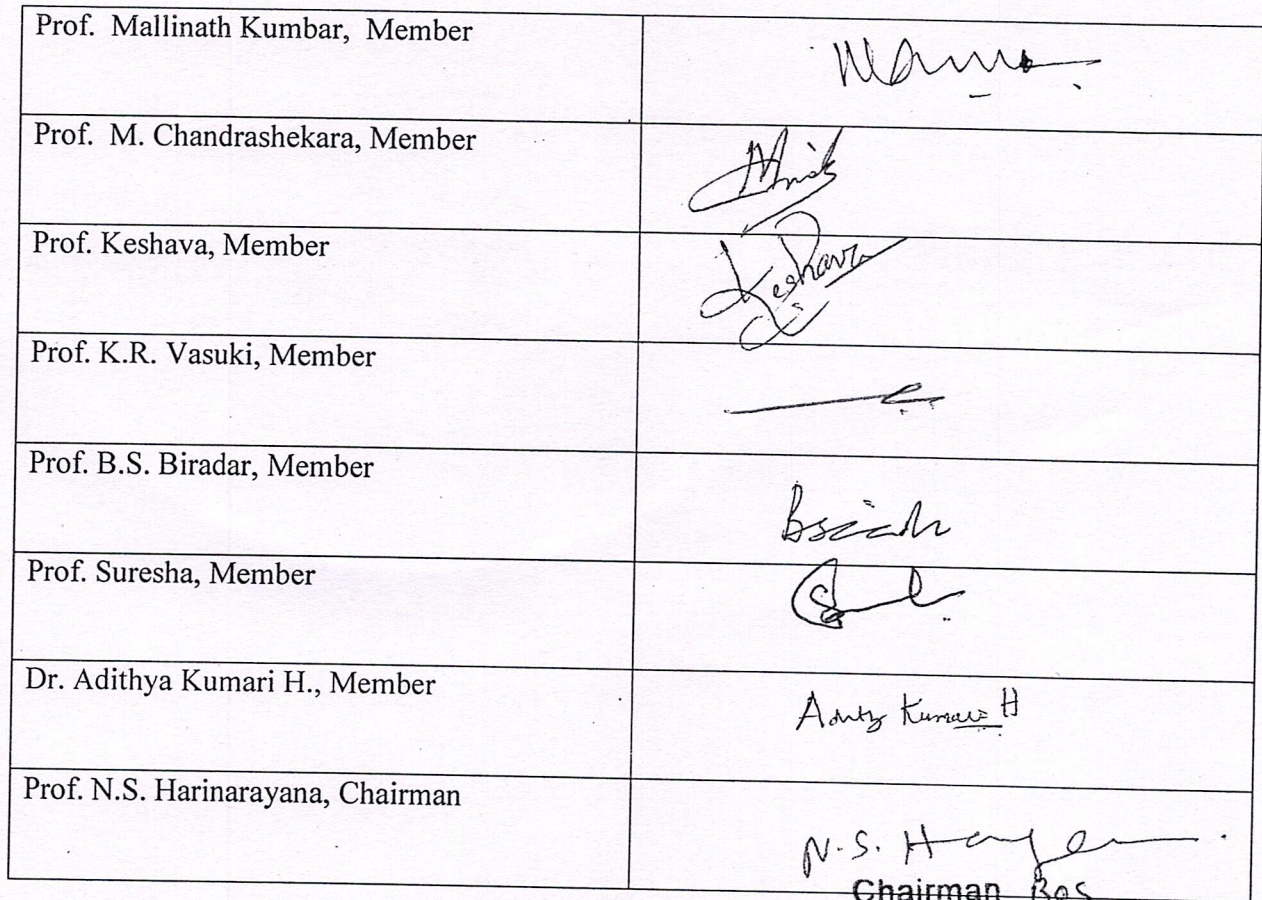 Prof. Mallinath Kumbar, Member
Prof. M. Chandrashekara, Member
Prof. Keshava, Member
Keshava
Prof. K.R. Vasuki, Member
Prof. B.S. Biradar, Member
Prof. Suresha, Member
Dr. Adithya Kumari H., Member
Kumari H
Prof. N.S. Harinarayana, Chairman
N.S.
Chairman BOS